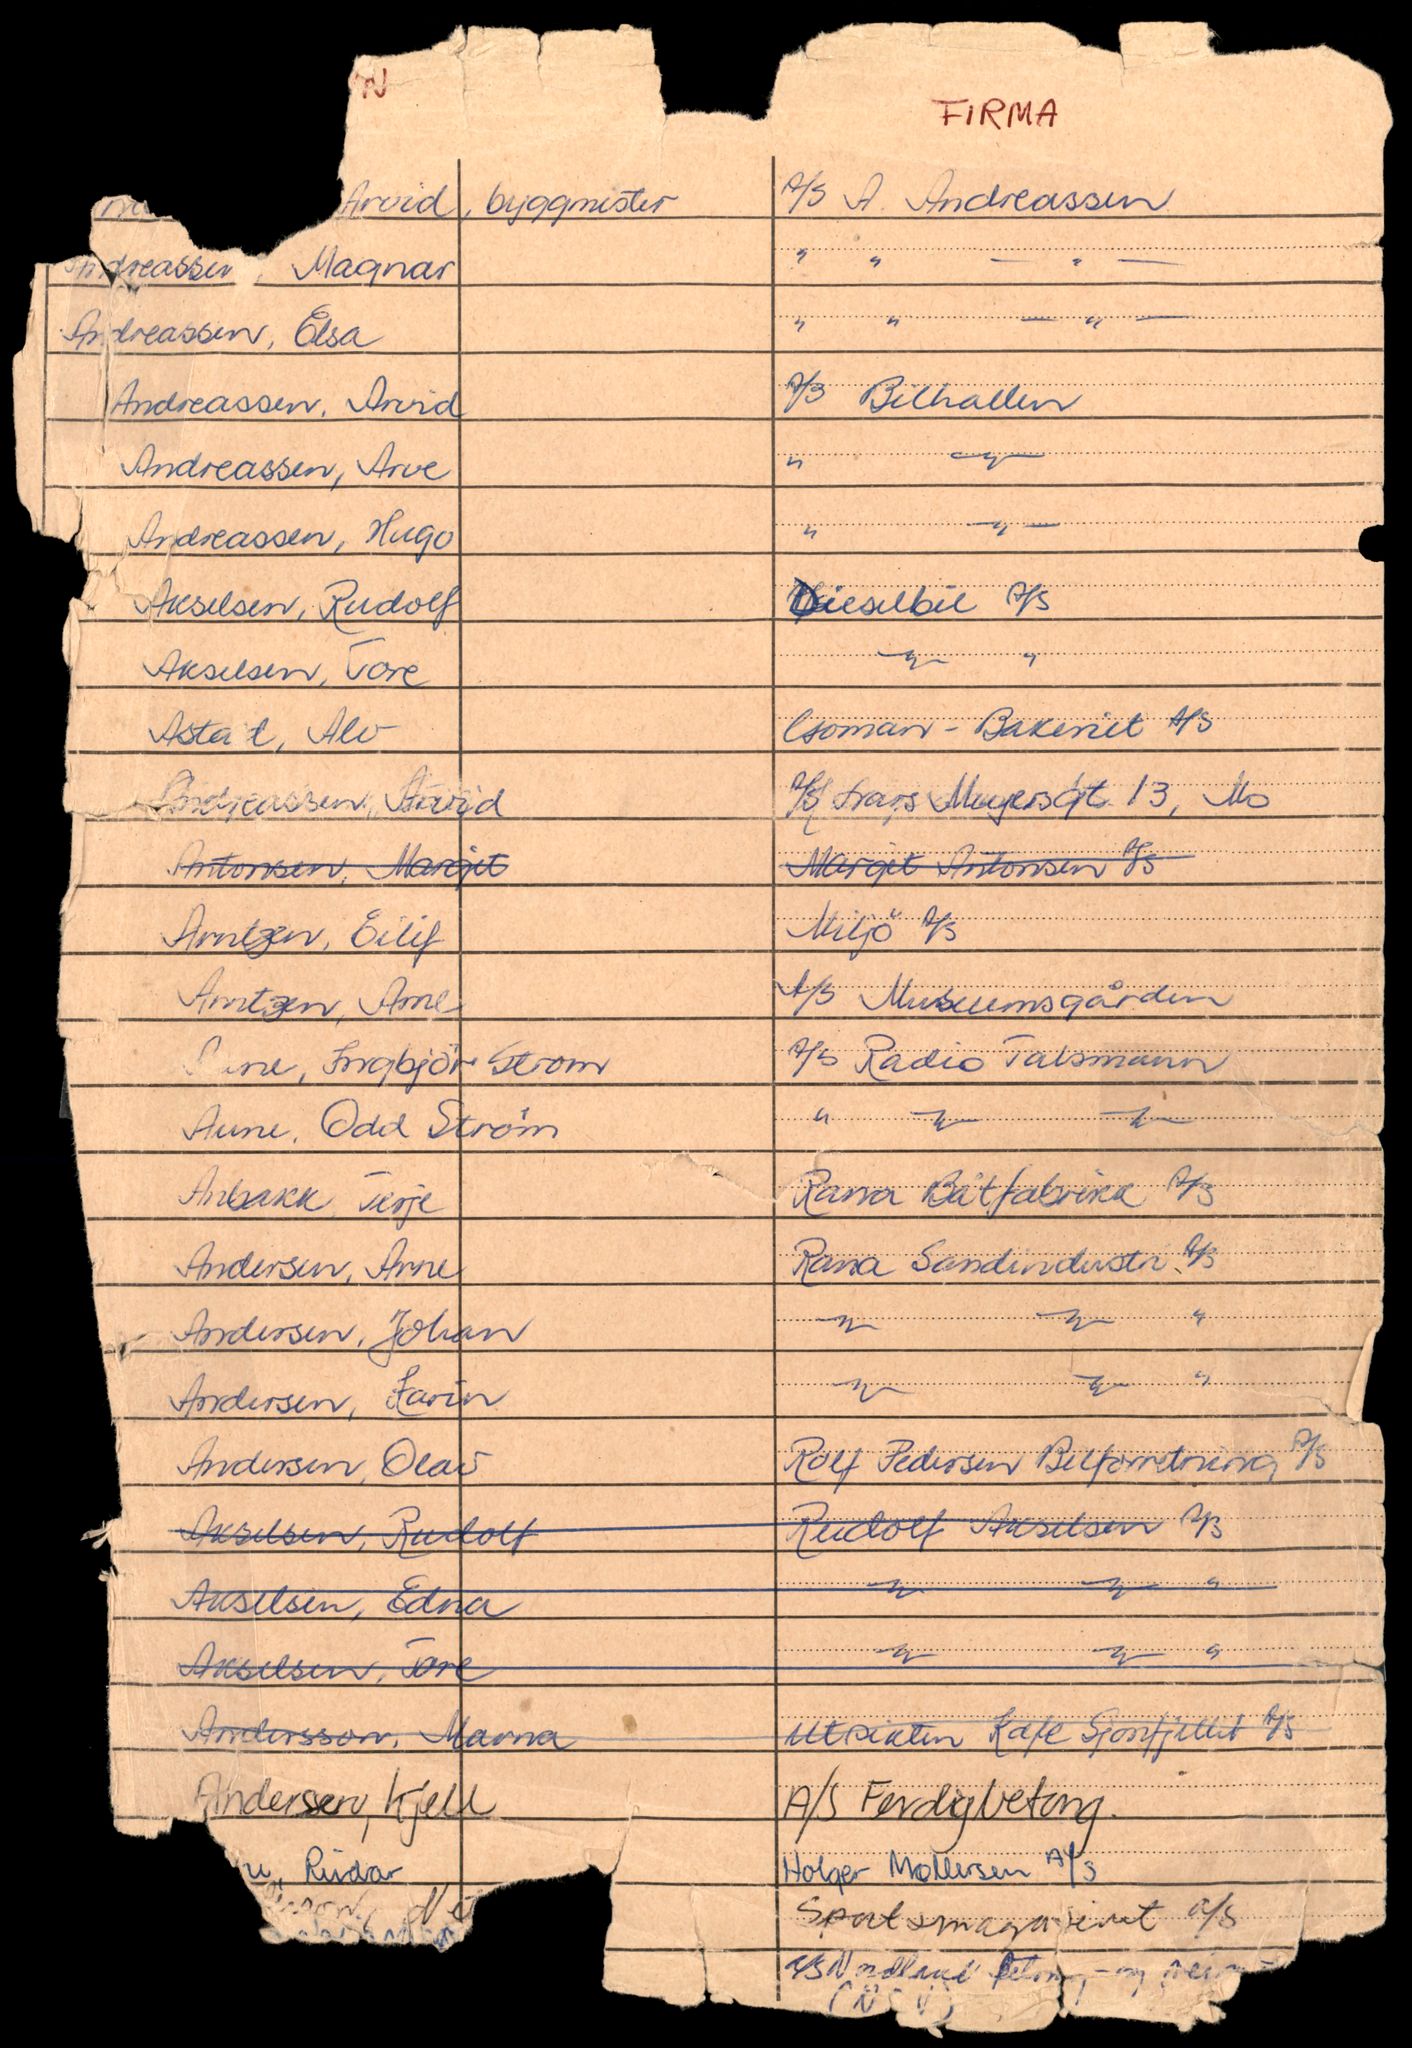 N FIRMA
Arvid, byggmester A/S A. Andreassen
Andreassen, Magnar " " — " —
Andreassen, Elsa " " — " —
Andreassen, Arvid A/S Bilhallen
Andreassen, Arve " — " —
Andreassen, Hugo " — " —
Akselsen, Rudolf Dieselbil A/S
Akselsen, Tore — " — "
Alv Bakeriet A/S
Andreassen, Arvid A/S Meyersgt 13, Mo
Antonsen, Margit Margit Antonsen A/S
Arntzen, Eilif Miljö A/S
Arntzen, Arne A/S Museumsgården
Strom A/S Radio Talsmann
Aune, Odd Ström " — " — — " —
Anbakk Terje Rana Båtfabrikk A/S
Andersen, Arne Rana Sandindustri A/S
Andersen, Johan — " — — " — "
Andersen, Karin — " — — " — "
Andersen, Olav Rolf Pedersen Bilforretning A/S
Akselsen, Rudolf Rudolf Akselsen A/S
Akselsen, Edna — " — — " — "
Akselsen, Tore — " — — " — "
Andersson, Marna Utsikten Kafe Sjonfjellet A/S
Andersen, Kjell A/S Ferdigbetong.
Reidar Holger Mollersen A/S
Sportsmagasinet a/s
A/S Nordland betong- og